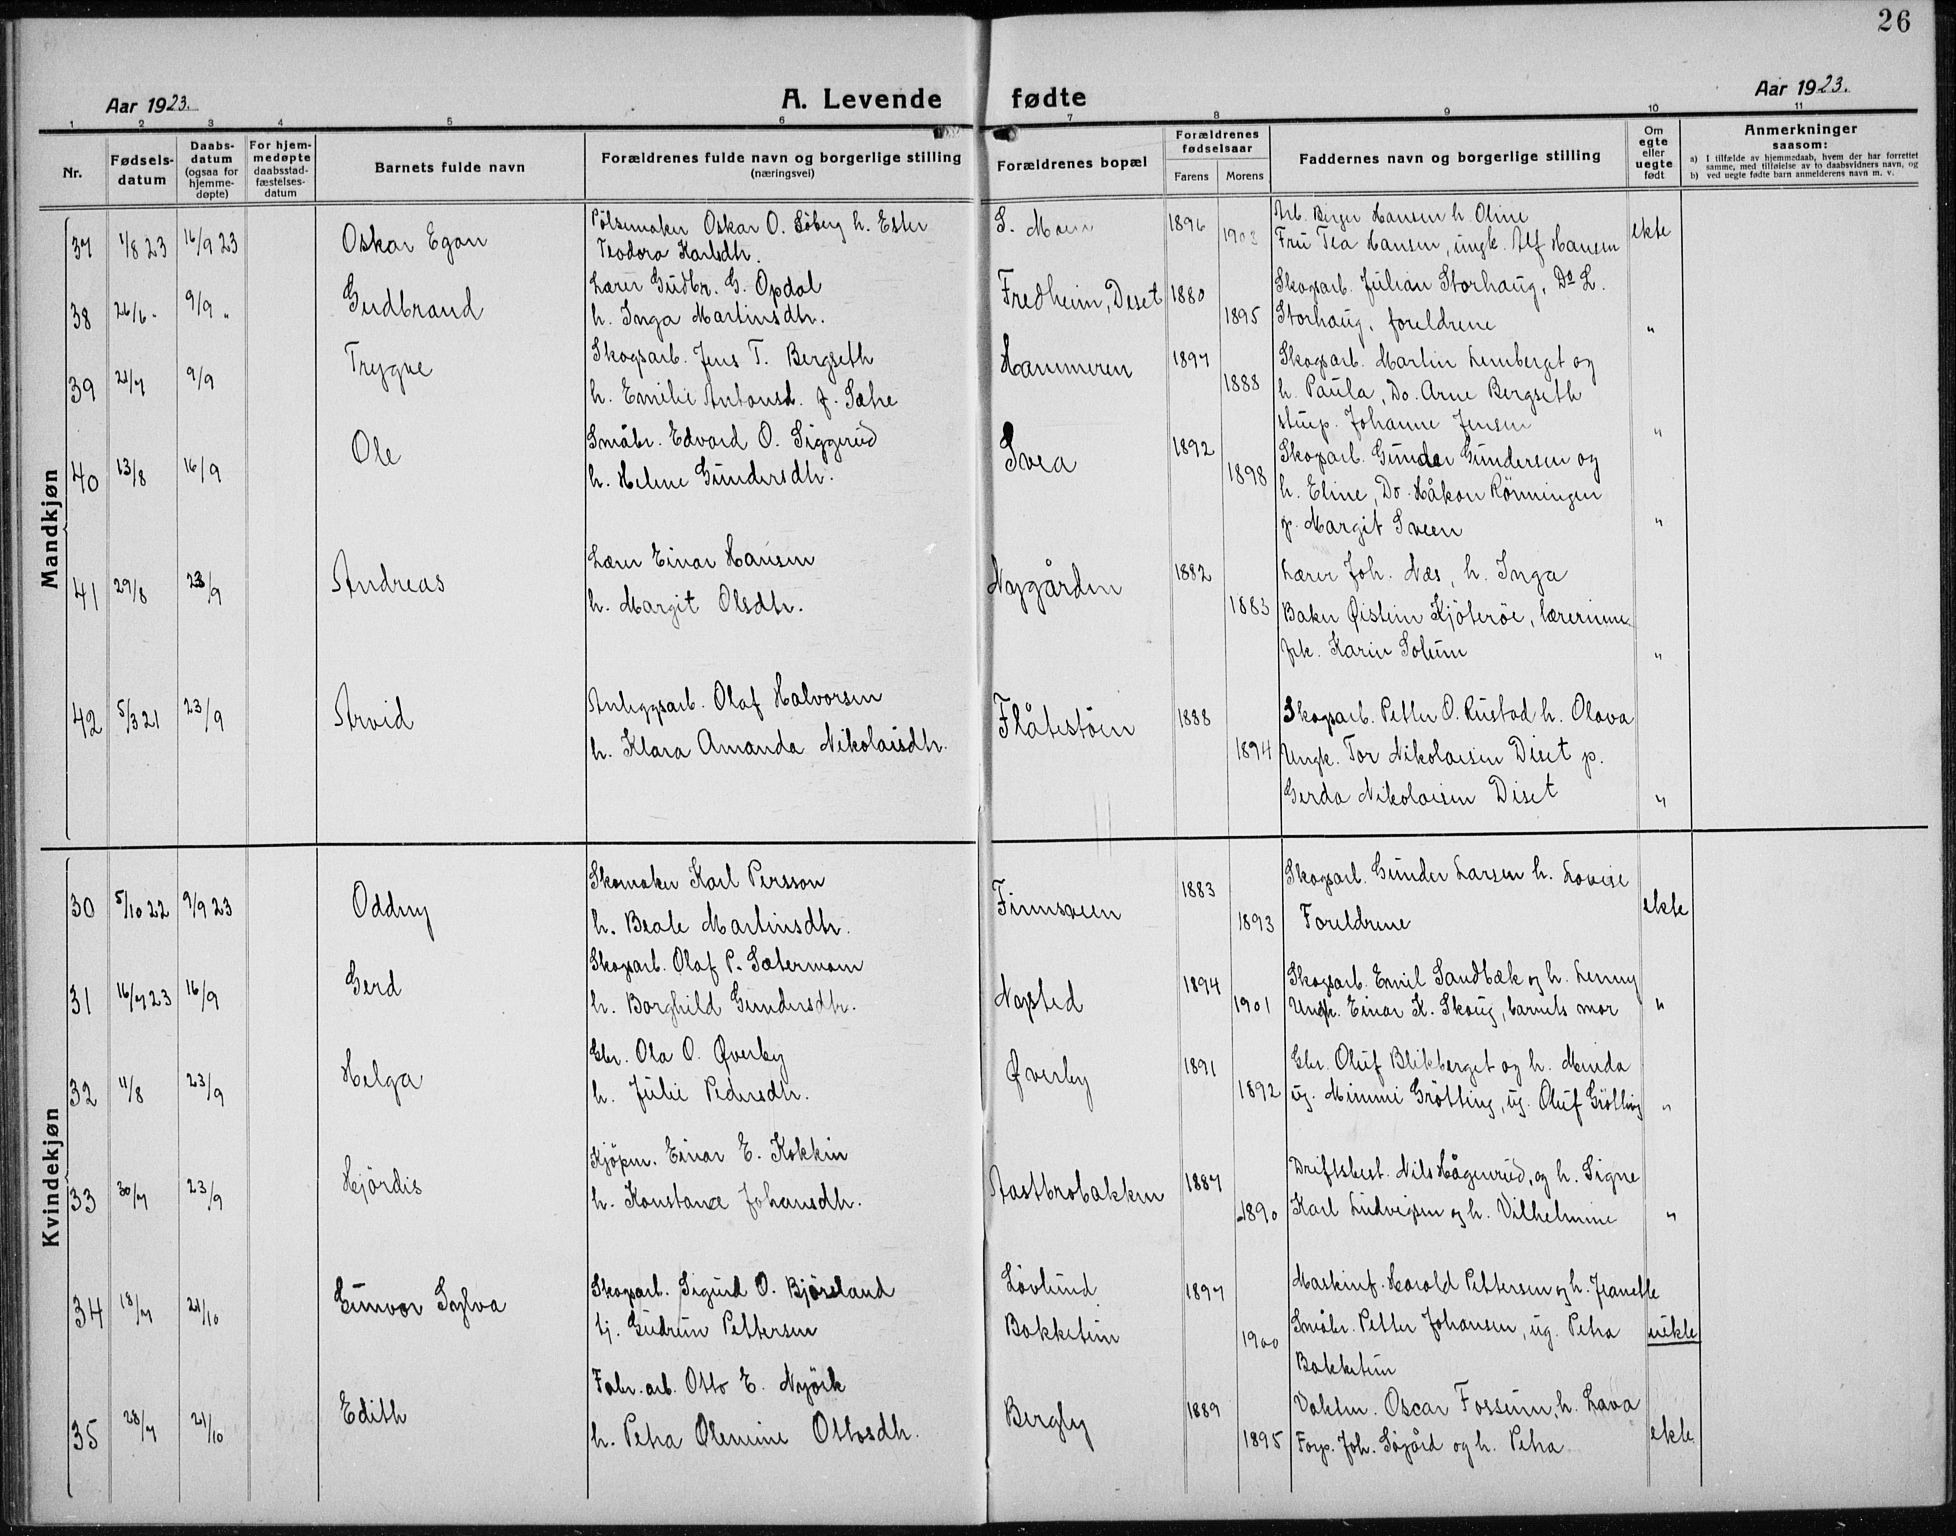 26
Aar 1923.
A. Levende fødte
Aar 1923.
1 2 3 4 5 6 7 8 9 10 11
Nr.
Fødsels-
datum
Daabs-
datum
(ogsaa for
hjemme-
døpte)
For hjem-
medøpte
daabsstad-
fæstelses-
datum
Barnets fulde navn
Forældrenes fulde navn og borgerlige stilling
(næringsvei)
Forældrenes bopæl
Forældrenes
fødselsaar
Farens Morens
Faddernes navn og borgerlige stilling
Om
egte
eller
uegte
født
Anmerkninger
saasom:
a) I tilfælde av hjemmedaab, hvem der har forrettet
samme, med tilføielse av to daabsvidners navn, og
b) ved uegte fødte barn anmelderens navn m. v.
Mandkjøn
37 1/8 23 16/9 23 Oskar Egon
Pölsemaker Oskar O. Söberg h. Ester
Teodora Karlsdtr.
S. Moen 1896 1903
Arb. Birger Hansen h. Oline
Fru Tea Hansen, ungk. Alf Hansen ekte
38 26/6 " 9/9 " Gudbrand
Lærer Gudbr. G. Opdal
h. Inga Martinsdtr.
Fredheim, Deset 1880 1895
Skogsarb. Julian Storhaug, Do L.
Storhaug, foreldrene "
39 21/7 9/9 Trygve
Skogsarb. Jens T. Bergseth
h. Emilie Antonsd. f. Sætre
Hammeren 1897 1888
Skogsarb. Martin Lemberget og
h. Paula, Do. Arne Bergseth
stup. Johanne Jensen "
40 13/8 16/9 Ole
Småbr. Edvard O. Siggerud
h. Helene Gundersdtr.
Svea 1892 1898
Skogsarb. Gunder Gundersen og
h. Eline, Do. Håkon Rönningen
p. Margit Sveen "
41 29/8 23/9 Andreas
Lærer Einar Hansen
h. Margit Olsdtr.
Nygården 1882 1883
Lærer Joh. Næs, h. Inga
Baker Øistein Kjöteröe, lærerinne
frk. Karin Solum "
42 5/3 21 23/9 Arvid
Anleggsarb. Olaf Halvorsen
h. Klara Amanda Nikolaisdtr.
Flåtestöen 1888 1894
Skogsarb. Petter O. Rustad h. Olava
Ungk. Tor Nikolaisen Diset p.
Gerda Nikolaisen Diset "
Kvindekjøn
30 5/10 22 9/9 23 Oddny
Skomaker Karl Persson
h. Beate Martinsdtr.
Finnsveen 1883 1893
Skogsarb. Gunder Larsen h. Lovise
Foreldrene ekte
31 16/7 23 16/9 Gerd
Skogsarb. Olaf P. Sætermoen
h. Borghild Gundersdtr.
Nysted 1894 1901
Skogsarb. Emil Sandbæk og h. Lenny
Ungk. Einar K. Skoug, barnets mor "
32 11/8 23/9 Helga
Gbr. Ola O. Øverby
h. Julie Pedersdtr.
Øverby 1891 1892
Gbr. Oluf Blikberget og h. Minda
ug. Mimmi Grötting, ug. Oluf Grötting "
33 30/7 23/9 Hjördis
Kjöpm. Einar E. Kokkin
h. Konstance Johansdtr.
Aastbrobakken 1887 1890
Driftsbest. Nils Hågenrud, og h. Signe
Karl Ludvigsen og h. Vilhelmine "
34 18/7 21/10 Gunvor Sylva
Skogsarb. Sigurd O. Björeland
tj. Gudrun Pettersen
Lövlund
Bakketun 1897 1900
Maskinf. Harold Pettersen og h. Jeanette
Småbr. Petter Johansen, ug. Petra
Bakketun uekte
35 28/7 21/10 Edith
Fabr. arb. Otto E. Nyörk
h. Petra Olemine Ottosdtr.
Bergly 1889 1895
Vaktm. Oscar Fossum, h. Lava
Forp. Joh. Sögård og h. Petra ekte